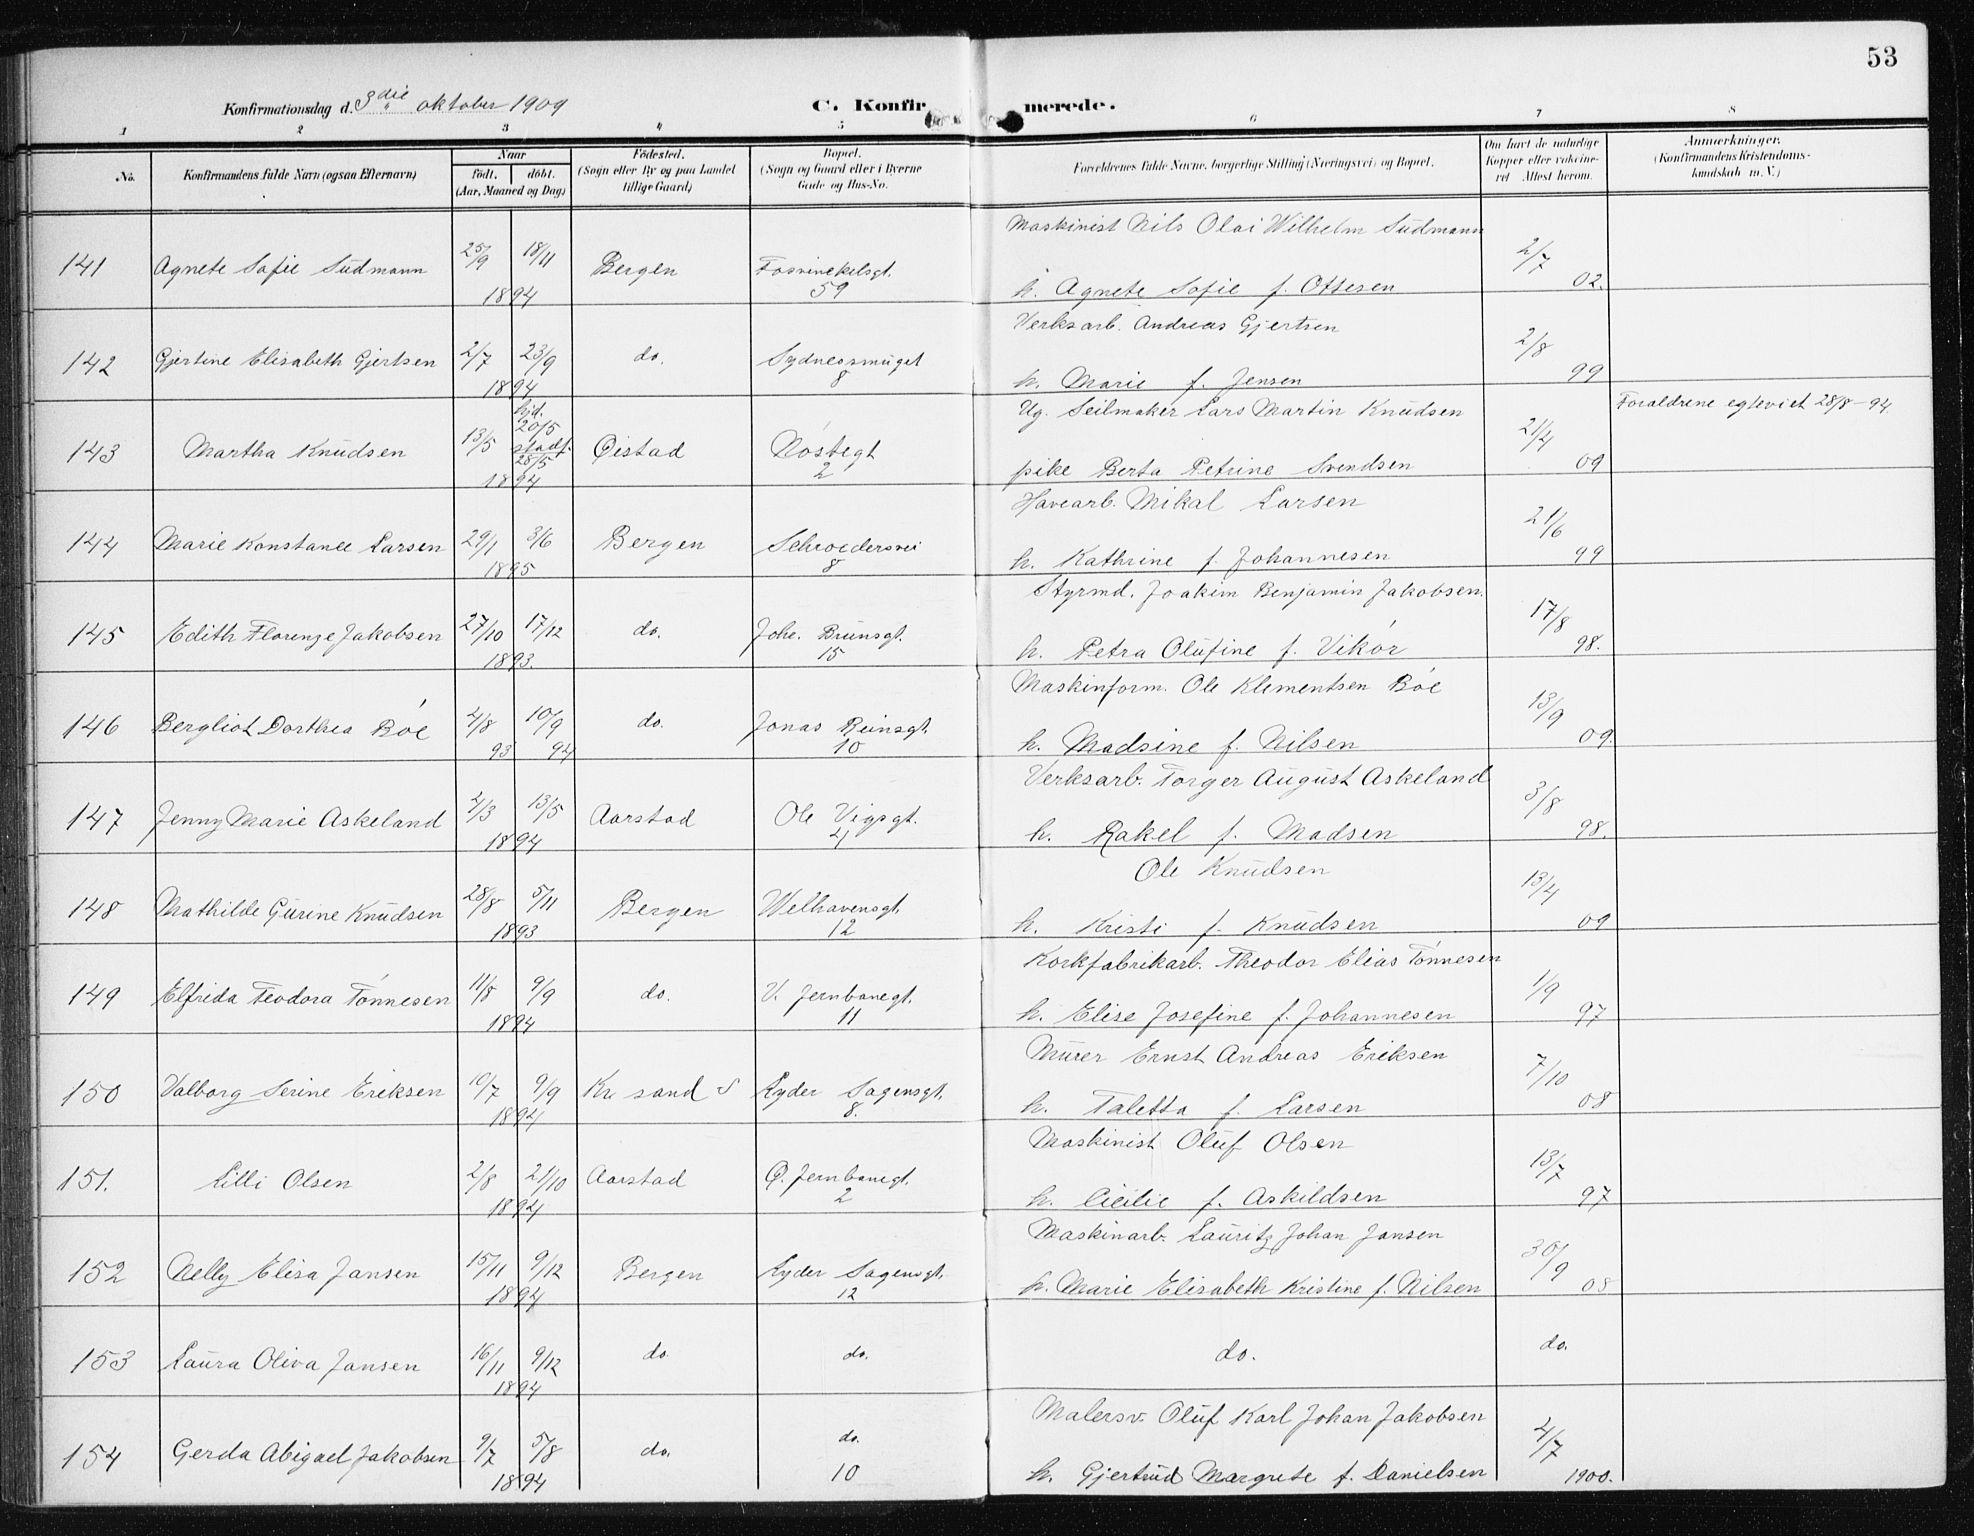 53
Konfirmationsdag d. 3die oktober 1909 C. Konfirmerede.
1 2 3 4 5 6 7 8
No. Konfirmandens fulde Navn (ogsaa Efternavn) Naar født. døbt. (Aar, Maaned og Dag) Fødested. (Sogn eller By og paa Landet tillige Gaard) Bopæl. (Sogn og Gaard eller i Byerne Gade og Hus-No. Forældrenes fulde Navne, borgerlige Stilling (Næringsvei) og Bopæl. Om havt de naturlige Kopper eller vaccineret Attest herom. Anmærkninger. (Konfirmandens Kristendomskundskab m. V.)
Maskinist Nils Olai Wilhelm Sudmann
141 Agnete Sofie Sudmann 25/9 18/11 1894 Bergen 59 2/7 02.
h. Agnete Sofie f. Ottesen
Verksarb. Andreas Gjertsen
142 Gjertine Elisabeth Gjertsen 2/7 23/9 1894 do. Sydnessmuget 8 2/8 99
h. Marie f. Jensen
Ug. Seilmaker Lars Martin Knudsen Foraldrene egteviet 28/8-94
143 Martha Knudsen 13/5 hjd. 20/5 stadf. 28/5 1894 Øistad Nøstegt 2 21/4 09
pike Berta Petrine Svendsen
Havearb. Mikal Larsen
144 Marie Konstance Larsen 29/1 3/6 1895 Bergen Schroedersvei 8 21/6 99
h. Kathrine f. Johannesen
Styrmd. Joakim Benjamin Jakobsen.
145 Edith Florenze Jakobsen 27/10 17/12 1893. do. Johe. Brunsgt. 15 17/8 98.
h. Petra Olufine f. Vikør
Maskinform. Ole Klementsen Bøe
146 Bergliot Dorthea Bøe 4/8 93 10/9 94 do. Jonas Reinsgt. 10 13/9 09.
h. Madsine f. Nilsen
Verksarb. Torger August Askeland
147 Jenny Marie Askeland 4/3 13/5 1894 Aarstad Ole Vigsgt. 4 3/8 98.
h. Rakel f. Madsen
Ole Knudsen
148 Mathilde Gurine Knudsen 28/8 5/11 1893 Bergen Welhavensgt. 12 13/4 09
h. Kristi f. Knudsen
Korkfabrikarb. Theodor Elias Tønnesen
149 Elfrida Teodora Tønnesen 11/8 9/9 1894 do. V. Jernbanegt. 11 1/9 97
h. Elise Josefine f. Johannesen
Murer Ernst Andreas Eriksen
150 Valborg Serine Eriksen 10/7 9/9 1894 Kr. sand S Lyder Sagensgt. 8. 7/10 08
h. Taletta f. Larsen
Maskinist Oluf Olsen
151. Lilli Olsen 2/8 21/10 1894 Aarstad Ø. Jernbanegt. 2 13/7 97
h. Cicilie f. Askildsen
Maskinarb. Lauritz Johan Jansen
152 Nelly Elisa Jansen 15/11 9/12 1894 Bergen Lyder Sagensgt. 12 30/9 08
h. Marie Elisabeth Kristine f. Nilsen
153 Laura Oliva Jansen 16/11 9/12 1894 do do. do. do.
Malersv. Oluf Karl Johan Jakobsen
154 Gerda Abigael Jakobsen 9/7 5/8 1894 do. do. 10 4/7 1900.
h. Gjertrud Margrete f. Danielsen